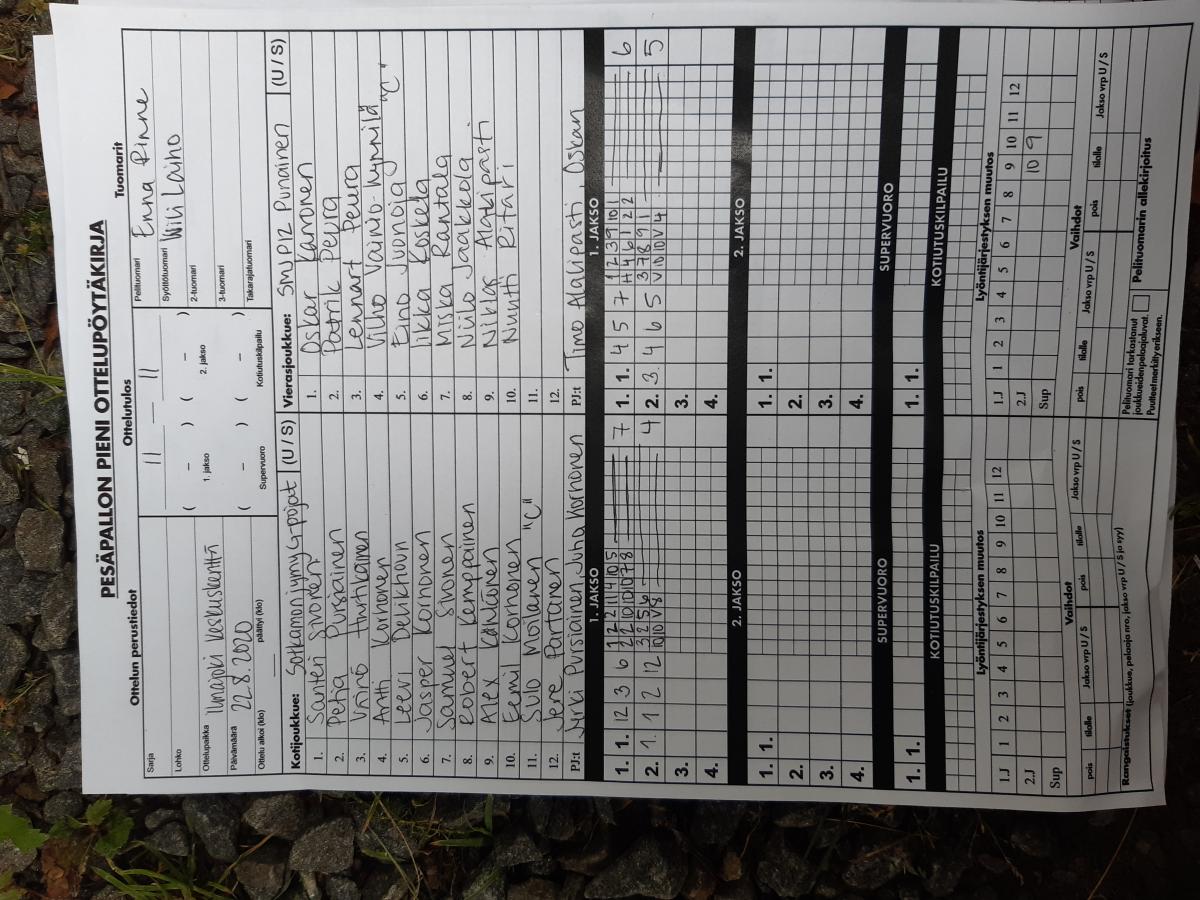 PESÄPALLON PIENI OTTELUPÖYTÄKIRJA
Ottelun perustiedot
Ottelutulos
Tuomarit
Sarja
11 – 11
Pelituomari
Enna Rinne
Lohko
( – ) ( – )
Syöttötuomari
Wili Laiho
Ottelupaikka
Ilmajoki keskuskenttä
1. jakso
2. jakso
2-tuomari
Päivämäärä
22.8.2020
( – ) ( – )
3-tuomari
Ottelu alkoi (klo)
päättyi (klo)
Supervuoro
Kotiutuskilpailu
Takarajatuomari
Kotijoukkue: Sotkamon jymy G-pojat (U / S)
1. Santeri Sivonen
2. Petja Pursiainen
3. Väinö Hurtikainen
4. Antti Korhonen
5. Leevi
6. Jasper Korhonen
7. Samuel Sivonen
8. Robert Kemppainen
9. Alex
10. Eemil Korhonen
11. Sulo Moilanen "C"
12. Jere Partanen
PJ:t Jyrki Pursiainen, Juha Korhonen
Vierasjoukkue: SMJ P12 Punainen (U / S)
1. Oskar Karonen
2. Patrik Peura
3. Lennart Peura
4. Vilho Vainio-Hynnilä "C"
5. Eino Luonoja
6. Iikka Koskela
7. Miska Rantala
8. Niilo Jaakkola
9. Niklas Alakipasti
10. Nuutti Ritari
11.
12.
PJ:t Timo Alalipasti, Oskari
1. JAKSO
1. JAKSO
1. 1. 12 3 6 7
1. 1. 4 5 7 6
2. 1 12 12 4
2. 3 4 6 5 5
3.
3.
4.
4.
2. JAKSO
2. JAKSO
1. 1.
1. 1.
2.
2.
3.
3.
4.
4.
SUPERVUORO
SUPERVUORO
1. 1.
1. 1.
KOTIUTUSKILPAILU
KOTIUTUSKILPAILU
Lyöntijärjestyksen muutos
Lyöntijärjestyksen muutos
1.J 1 2 3 4 5 6 7 8 9 10 11 12
1.J 1 2 3 4 5 6 7 8 9 10 11 12
2.J
2.J 10 9
Sup
Sup
Vaihdot
Vaihdot
pois tilalle Jakso vrp U / S pois tilalle Jakso vrp U / S
pois tilalle Jakso vrp U / S pois tilalle Jakso vrp U / S
Rangaistukset (joukkue, pelaaja nro, jakso vrp U / S ja syy)
Pelituomari tarkastanut
joukkueidenpelaajaluvat.
Puutteet merkitty erikseen.
Pelituomarin allekirjoitus